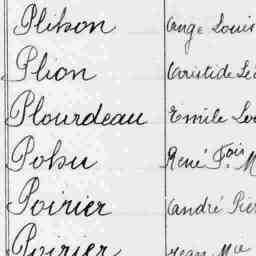 Plihon Ange Louis
Plion Aristide Lé
Plourdeau Emile Lo
Pohu René Fois M
Poirier André Pier
Poirier Jean Mie